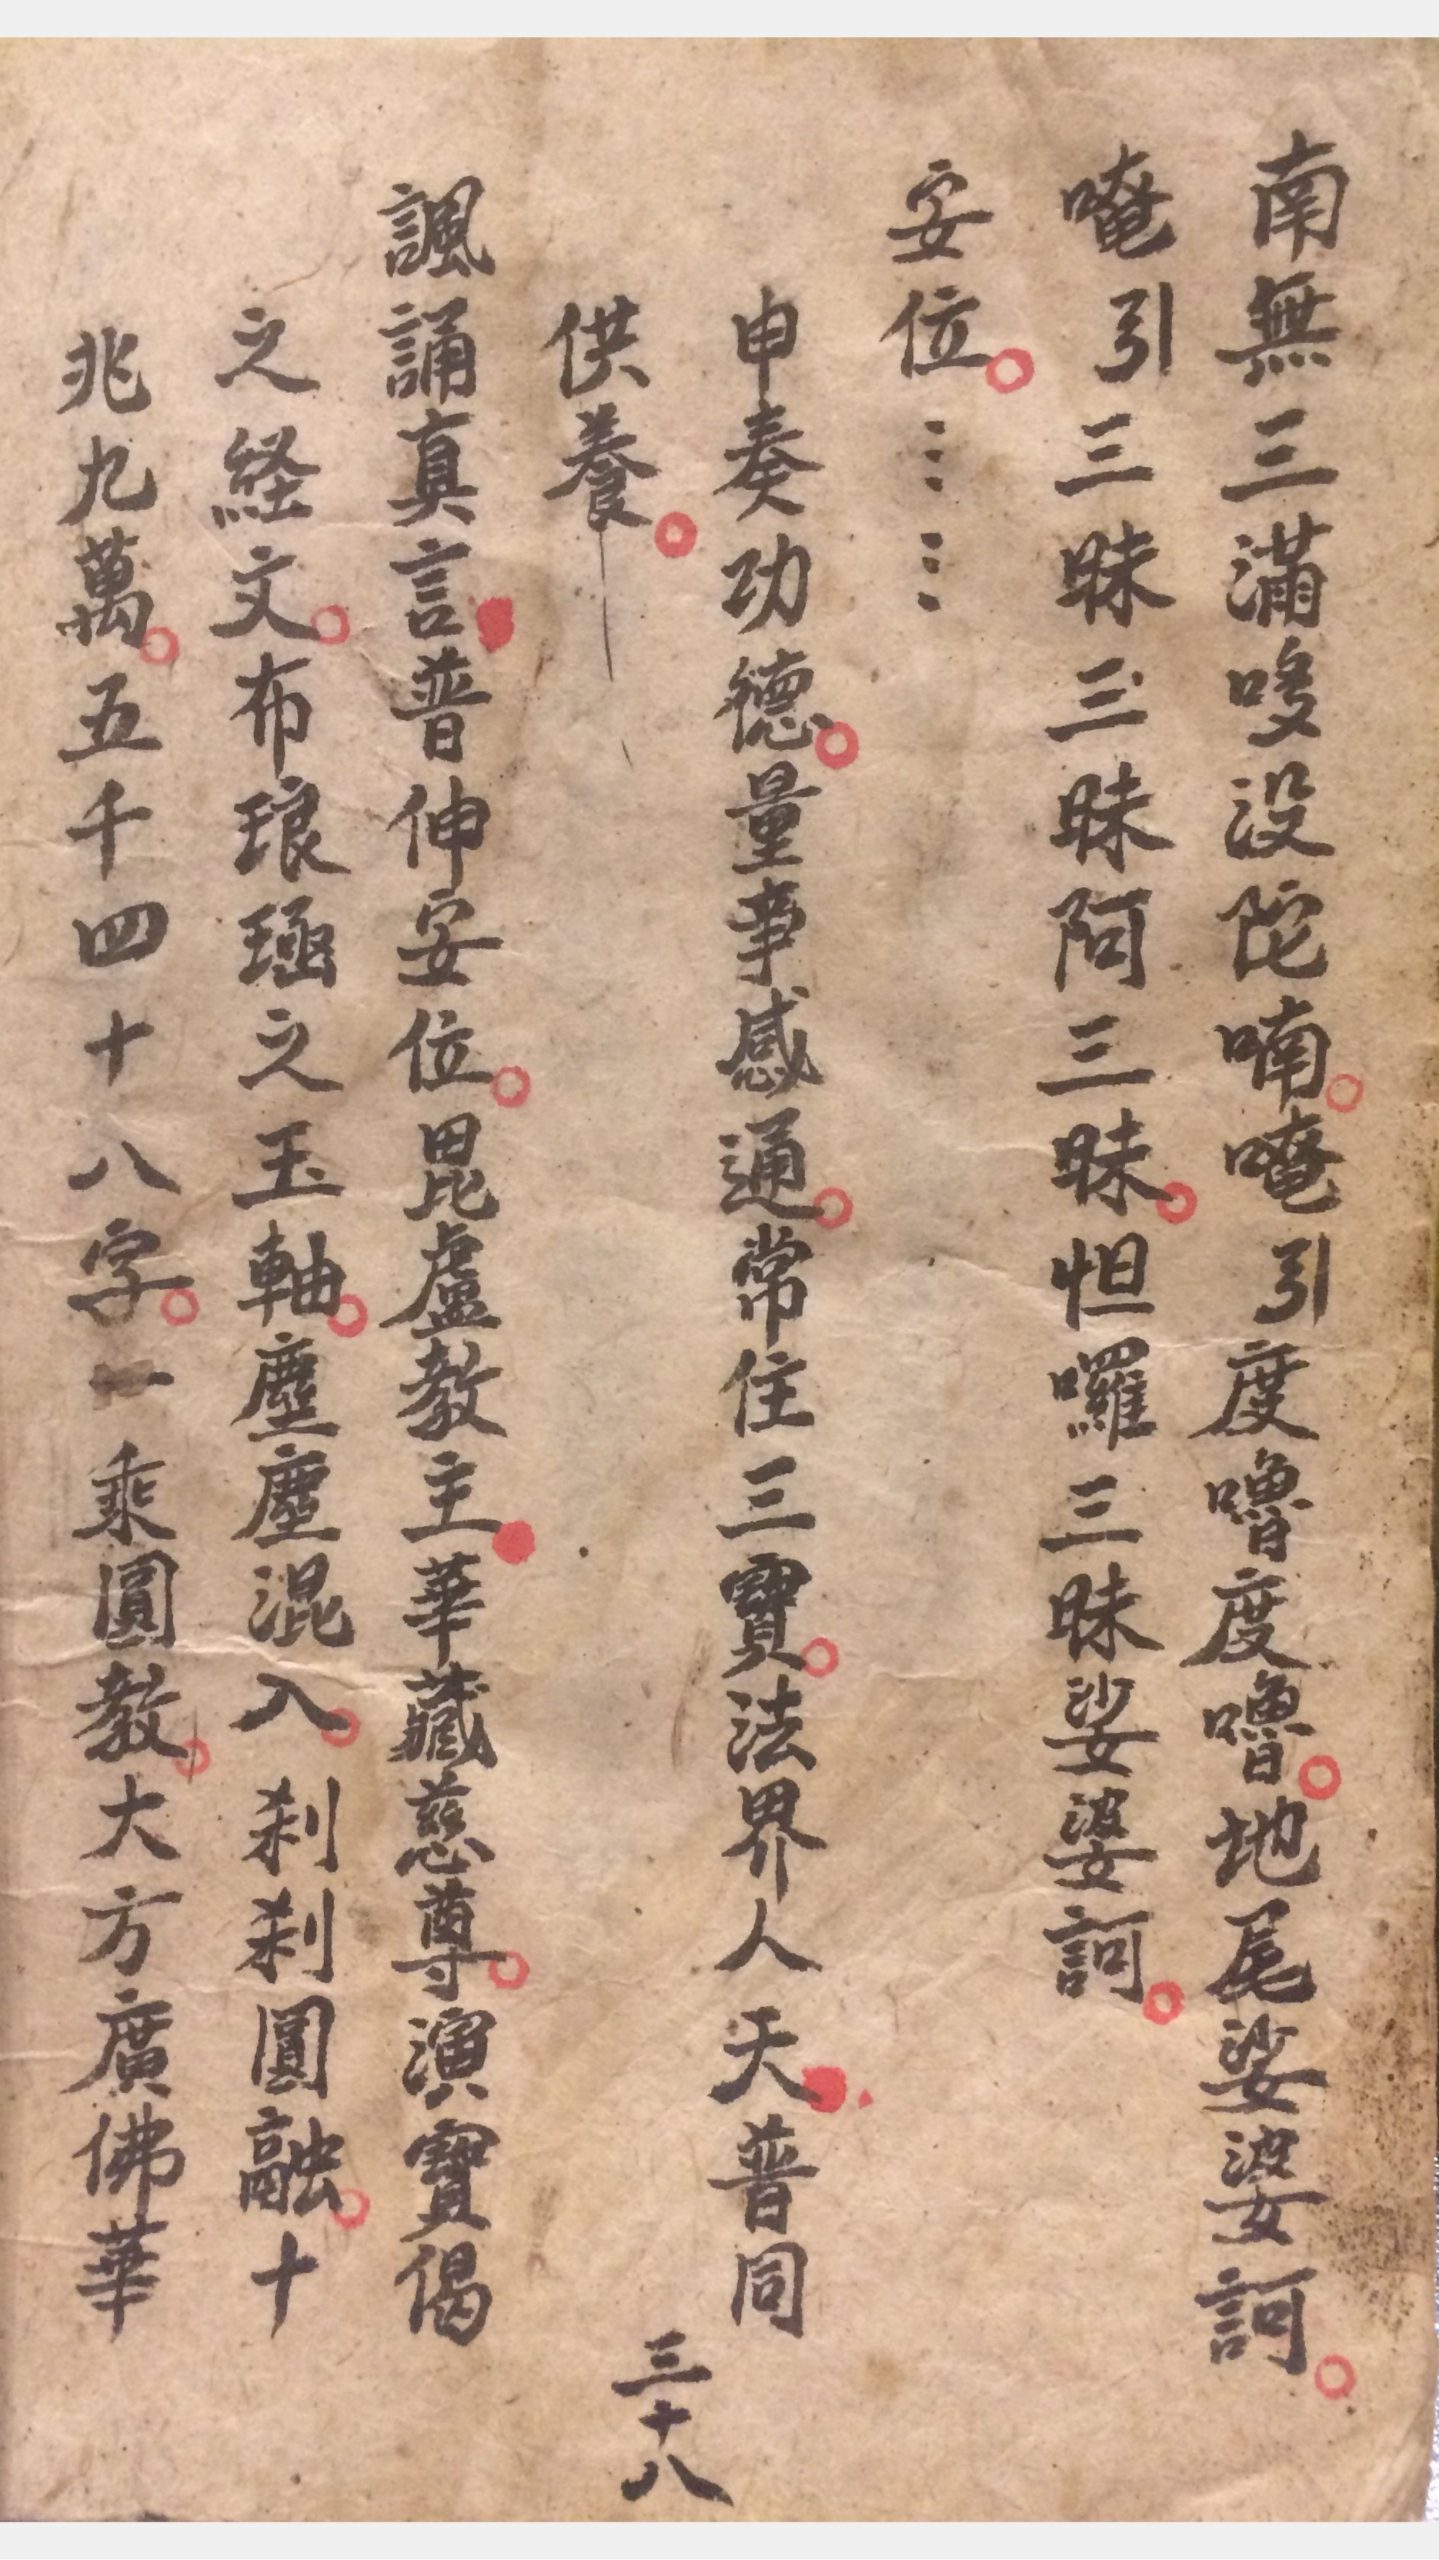 南無三滿哆没陀喃。唵引度嚕度嚕。地尾娑婆訶。
唵引三昧三昧阿三昧。怛囉三昧娑婆訶。
安位。⋮⋮
申奏功德。量事感通。常住三寶。法界人天。普同
供養。
諷誦真言。普伸安位。毘盧教主。華藏慈尊。演寶偈
之経文。布琅函之玉軸。塵塵混入。刹刹圓融。十
兆九萬。五千四十八字。一乘圓教。大方廣佛華
三十八